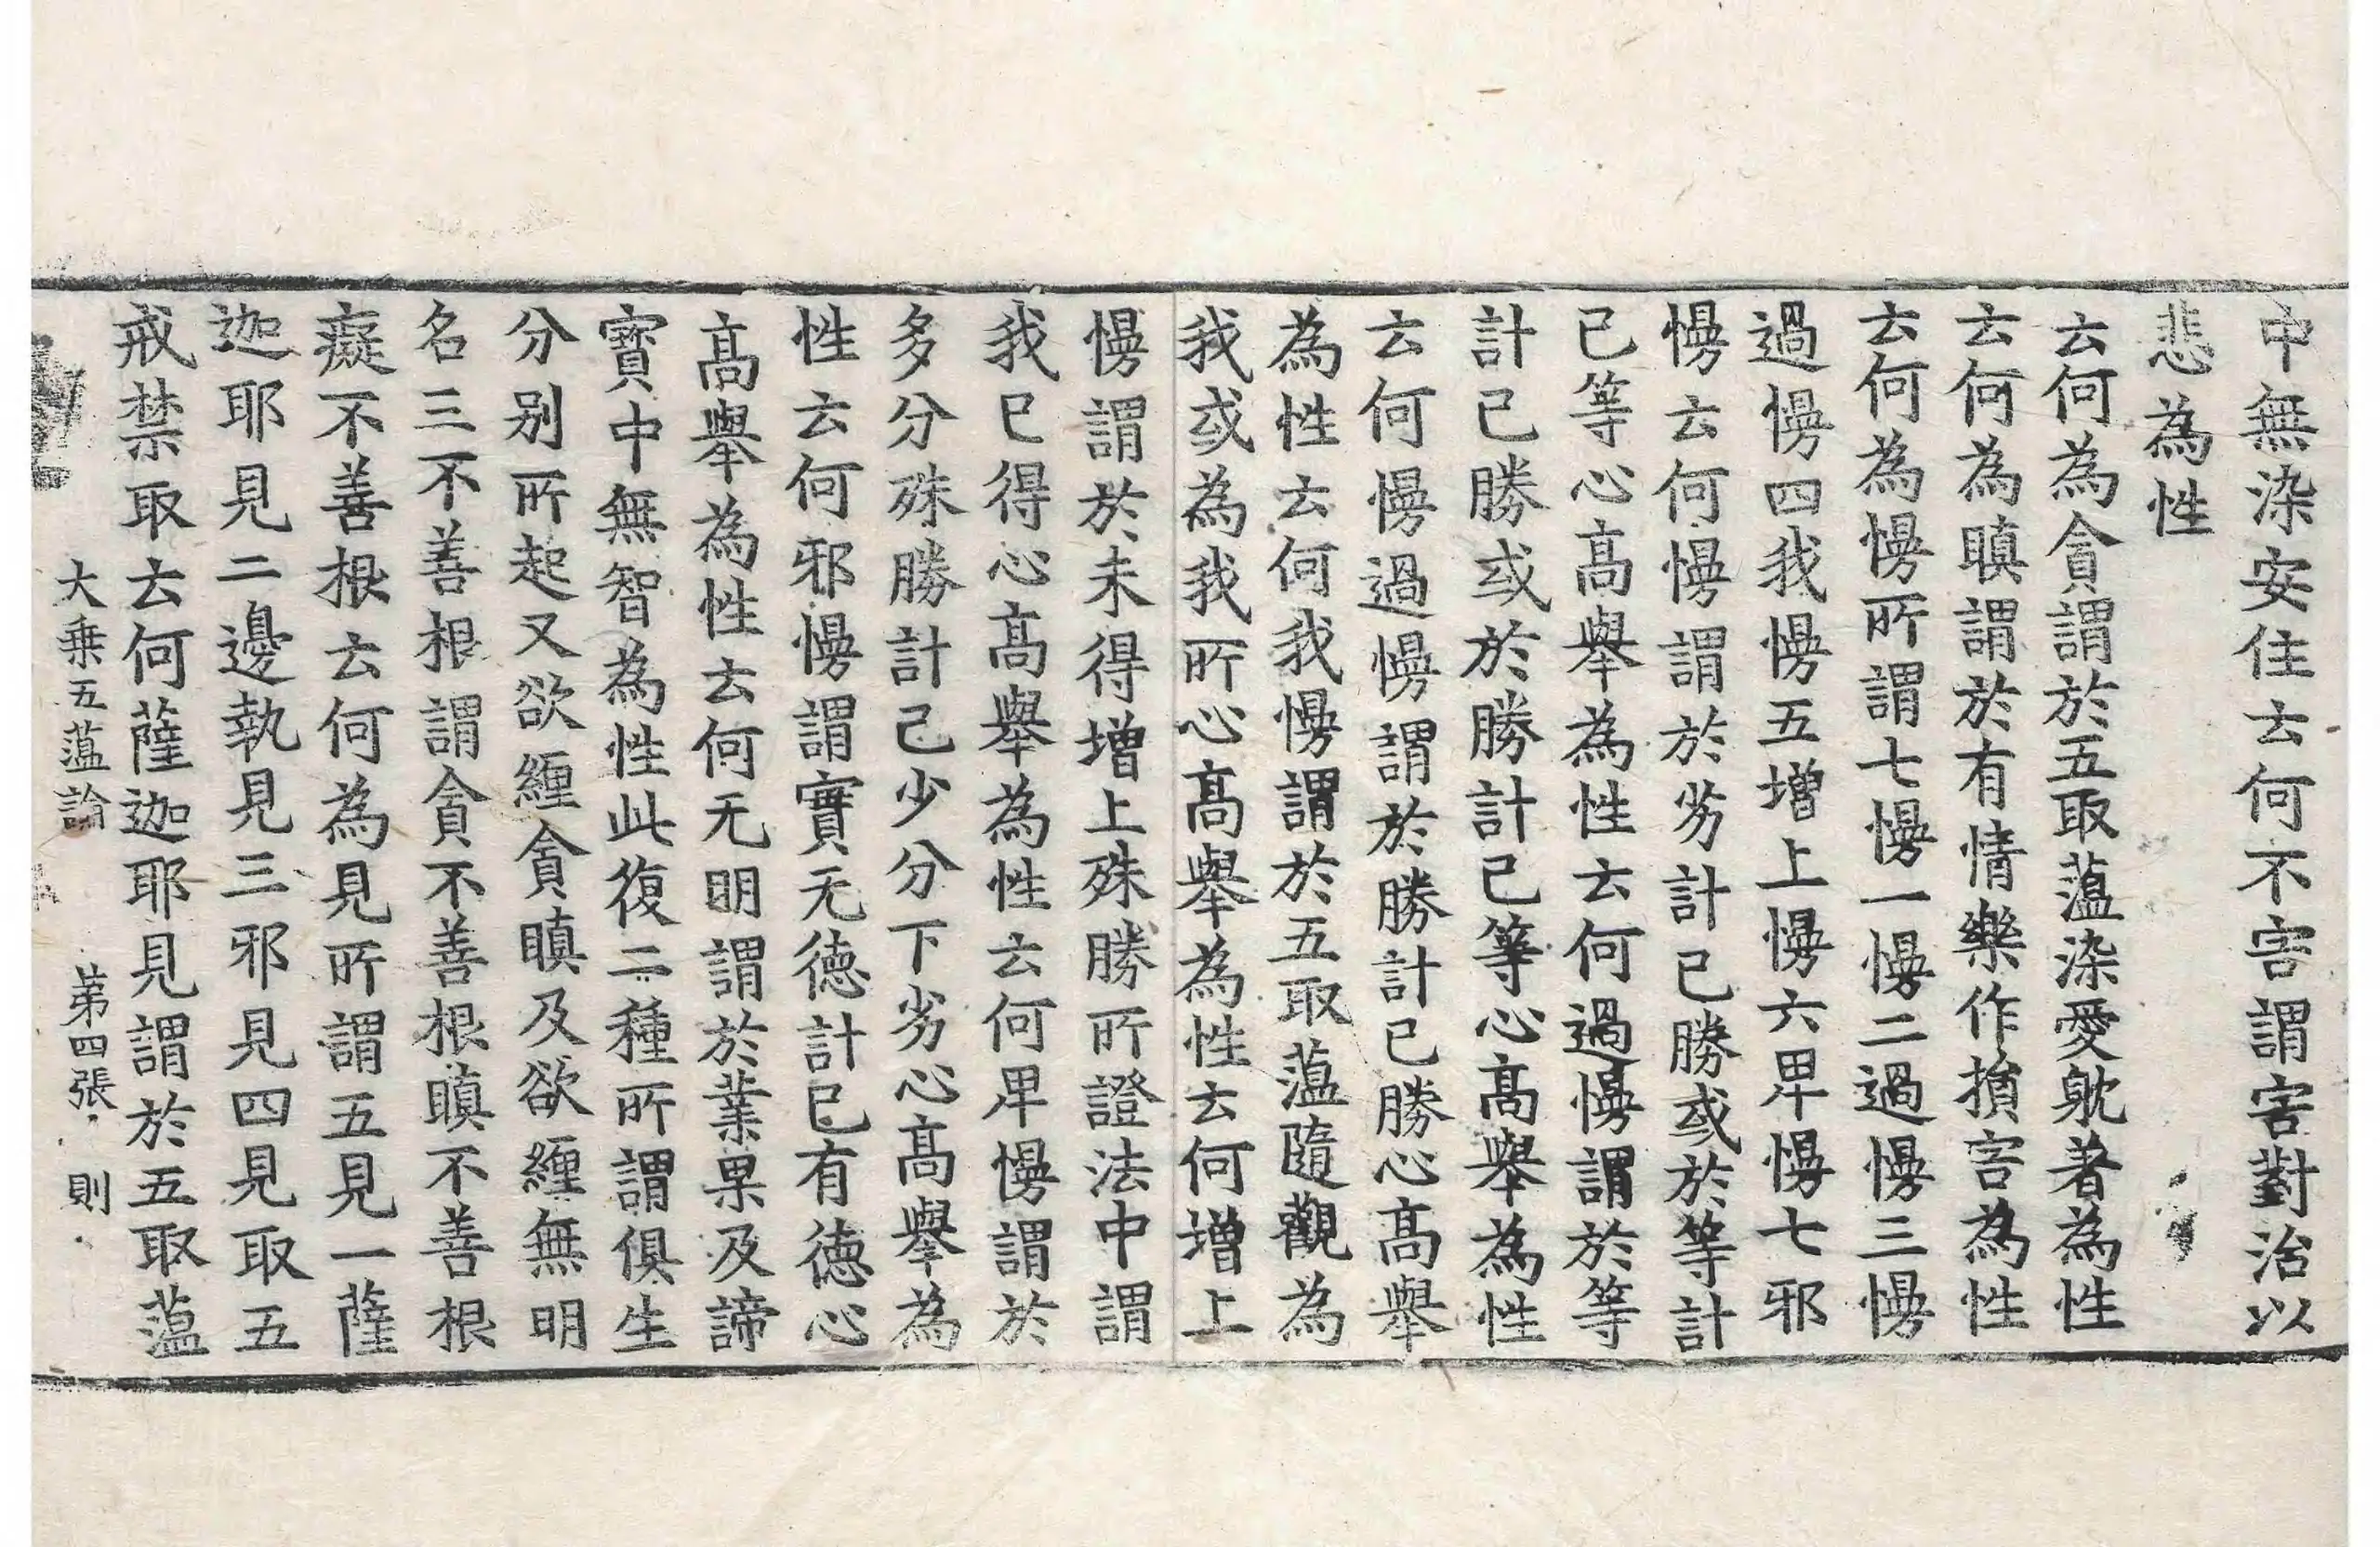 中無染安住云何不害謂害對治以
悲為性
云何為貪謂於五取蘊染愛躭著為性
云何為瞋謂於有情樂作損害為性
云何為慢所謂七慢一慢二過慢三慢
過慢四我慢五增上慢六卑慢七邪
慢云何慢謂於劣計已勝或於等計
已等心高舉為性云何過慢謂於等
計已勝或於勝計已等心高舉為性
云何慢過慢謂於勝計已勝心高舉
為性云何我慢謂於五取蘊隨觀為
我或為我所心高舉為性云何增上
慢謂於未得增上殊勝所證法中謂
我已得心高舉為性云何卑慢謂於
多分殊勝計己少分下劣心高舉為
性云何邪慢謂實无德計已有德心
高舉為性云何无明謂於業果及諦
寳中無智為性此復二種所謂俱生
分别所起又欲纏貪瞋及欲纏無明
名三不善根謂貪不善根瞋不善根
癡不善根云何為見所謂五見一薩
迦耶見二邊執見三邪見四見取五
戒禁取云何薩迦耶見謂於五取蘊
大乗五蘊論 苐四張 則